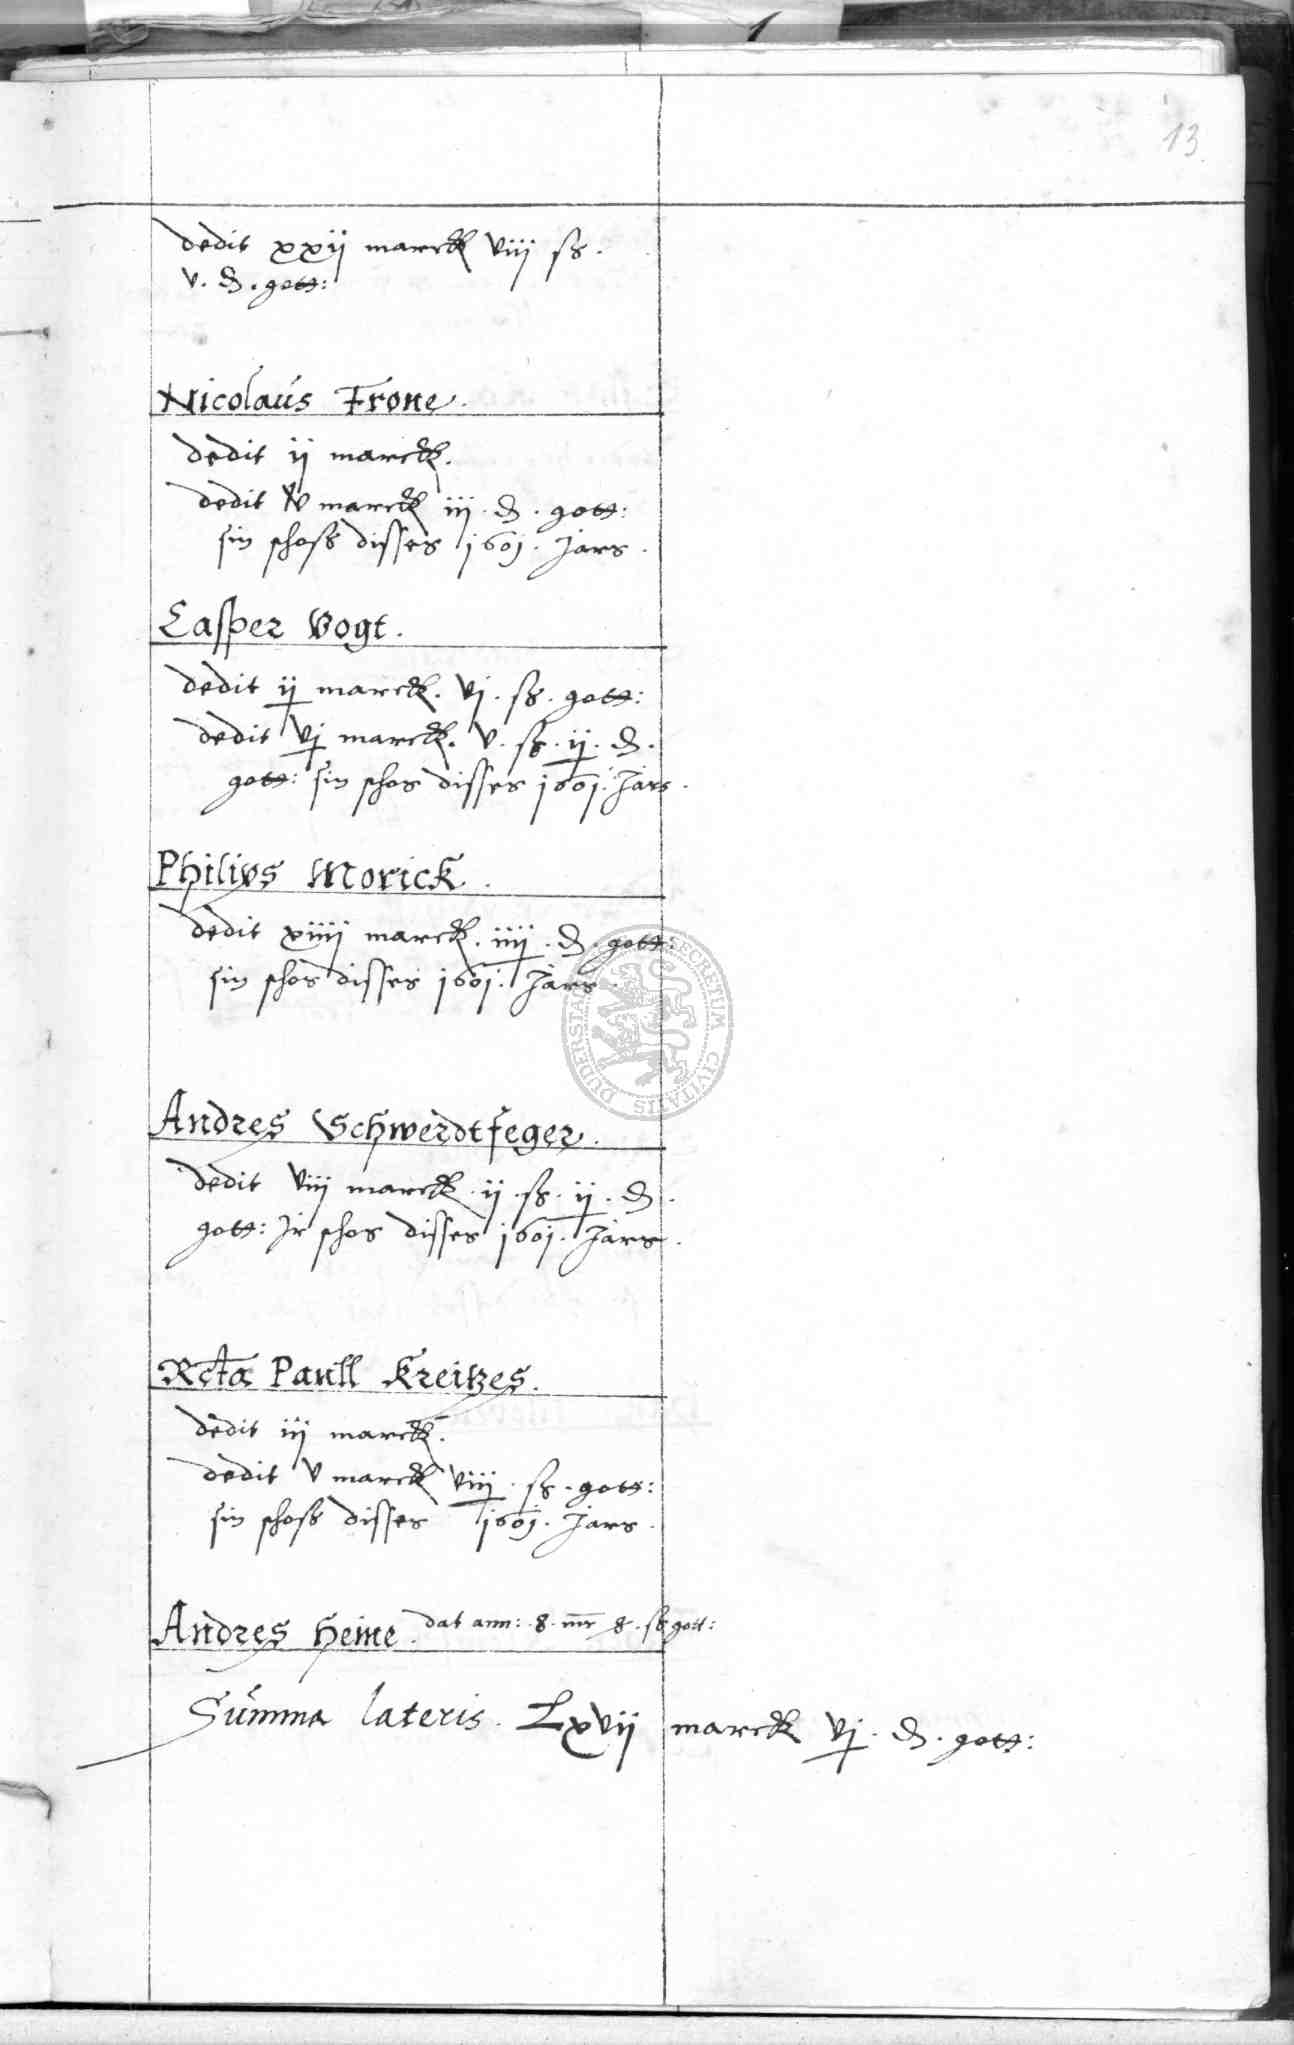 1
13
dedit xxij marck viiij ß.
v. ₰. gott:
Nicolaus Frone.
dedit ij marck.
dedit v marck iij. ₰. gott:
sin schoss disses 1601. Jars.
Casper Vogt.
dedit ij marck. vj. ß. gott:
dedit vj marck. v. ß. ij. ₰.
gott: sin schos disses 1601. Jars.
Philips Morick.
dedit xiiij marck. iiij. ₰. gott:
sin schos disses 1601. Jars.
DUDERSTADT SECRETUM CIVITATIS
Andres Schwerdtfeger.
dedit viij marck. ij. ß. ij. ₰.
gott: Jr schos disses 1601. Jars.
Rcta Paull Kreitzes.
dedit iij marck.
dedit v marck viiij. ß. gott:
sin schoss disses 1601. Jars.
Andres Heine. dat ann: 8. mr 8. ß gott:
Summa lateris. Lxvij marck vj. ₰. gott: